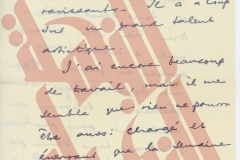 ravissante. Il a à coup
sûr un grand talent
artistique.
J'ai encore beaucoup
de travail, mais il me
semble que rien ne pourra
être aussi chargé et
énervant que la semaine